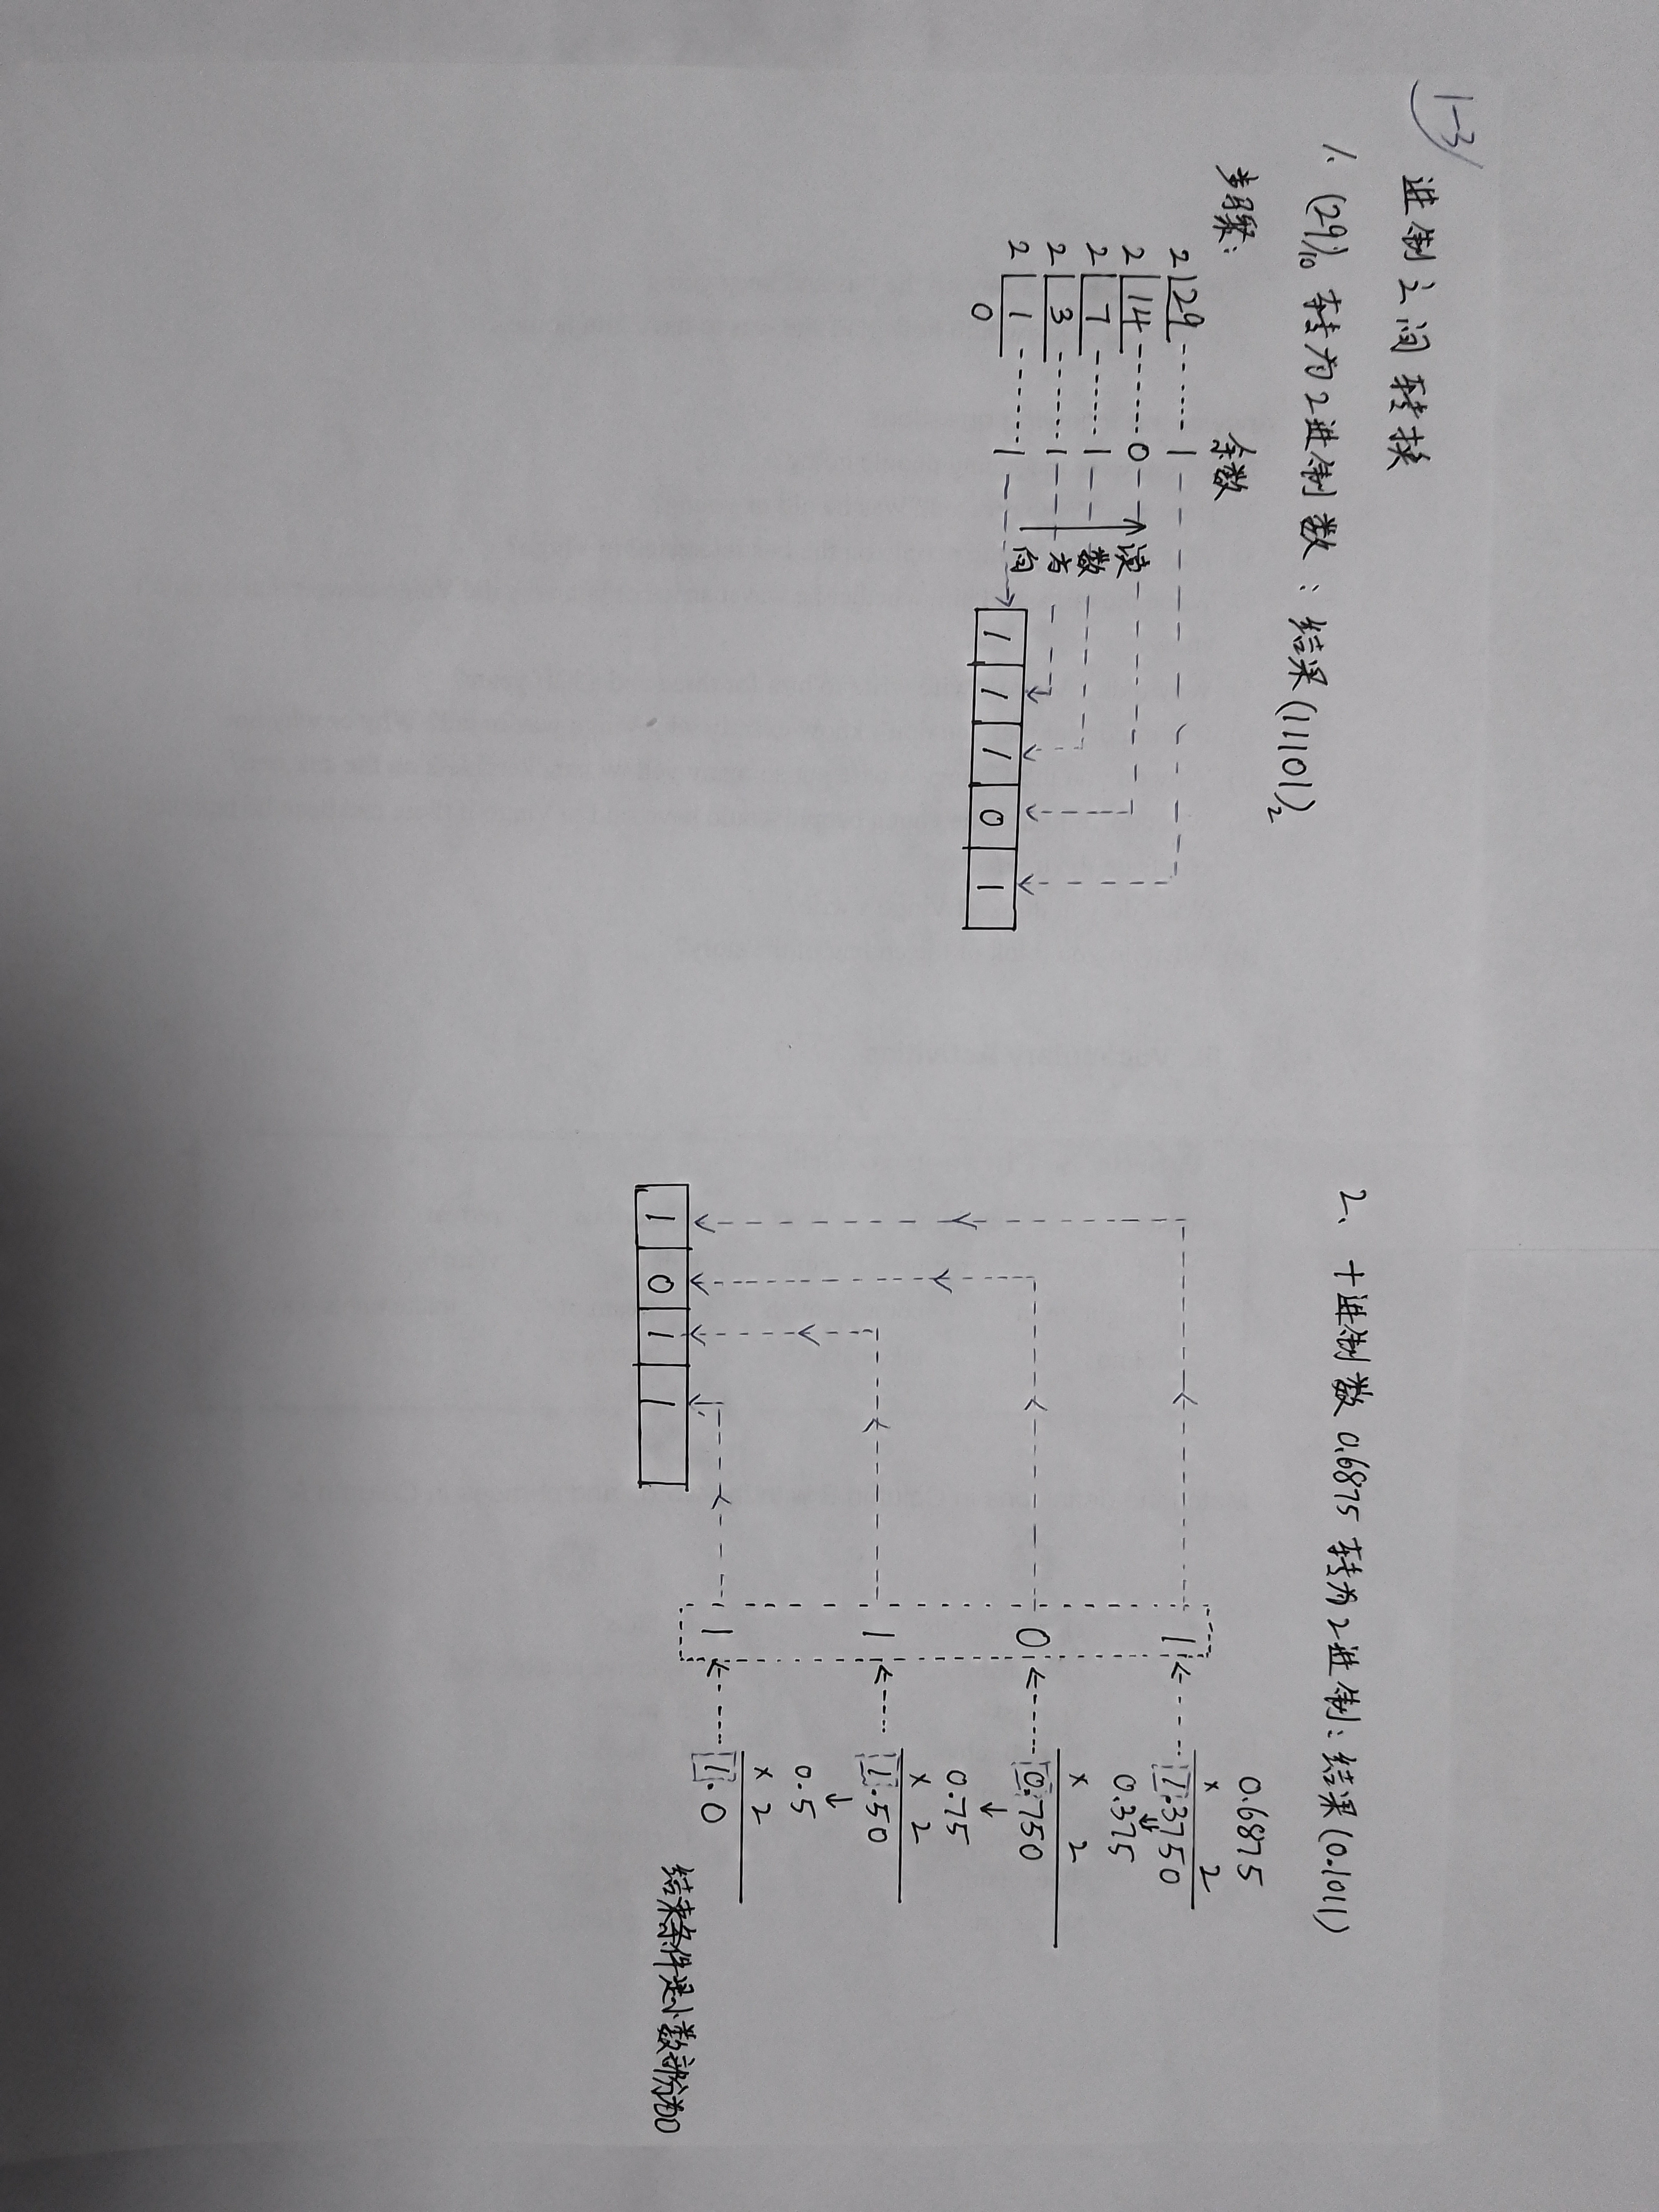 1-3
进制之间转换
1. (29)10 转为2进制数：结果(11101)2
步骤： 余数
2 29 1
2 14 0
2 7 1
2 3 1
2 1 1
0
读数方向
1 1 1 0 1
2、十进制数 0.6875 转为2进制：结果(0.1011)
0.6875
× 2
1 1.3750
0.375
× 2
0 0.750
0.75
× 2
1 1.50
0.5
× 2
1 1.0
结束条件是小数部分为0
1 0 1 1